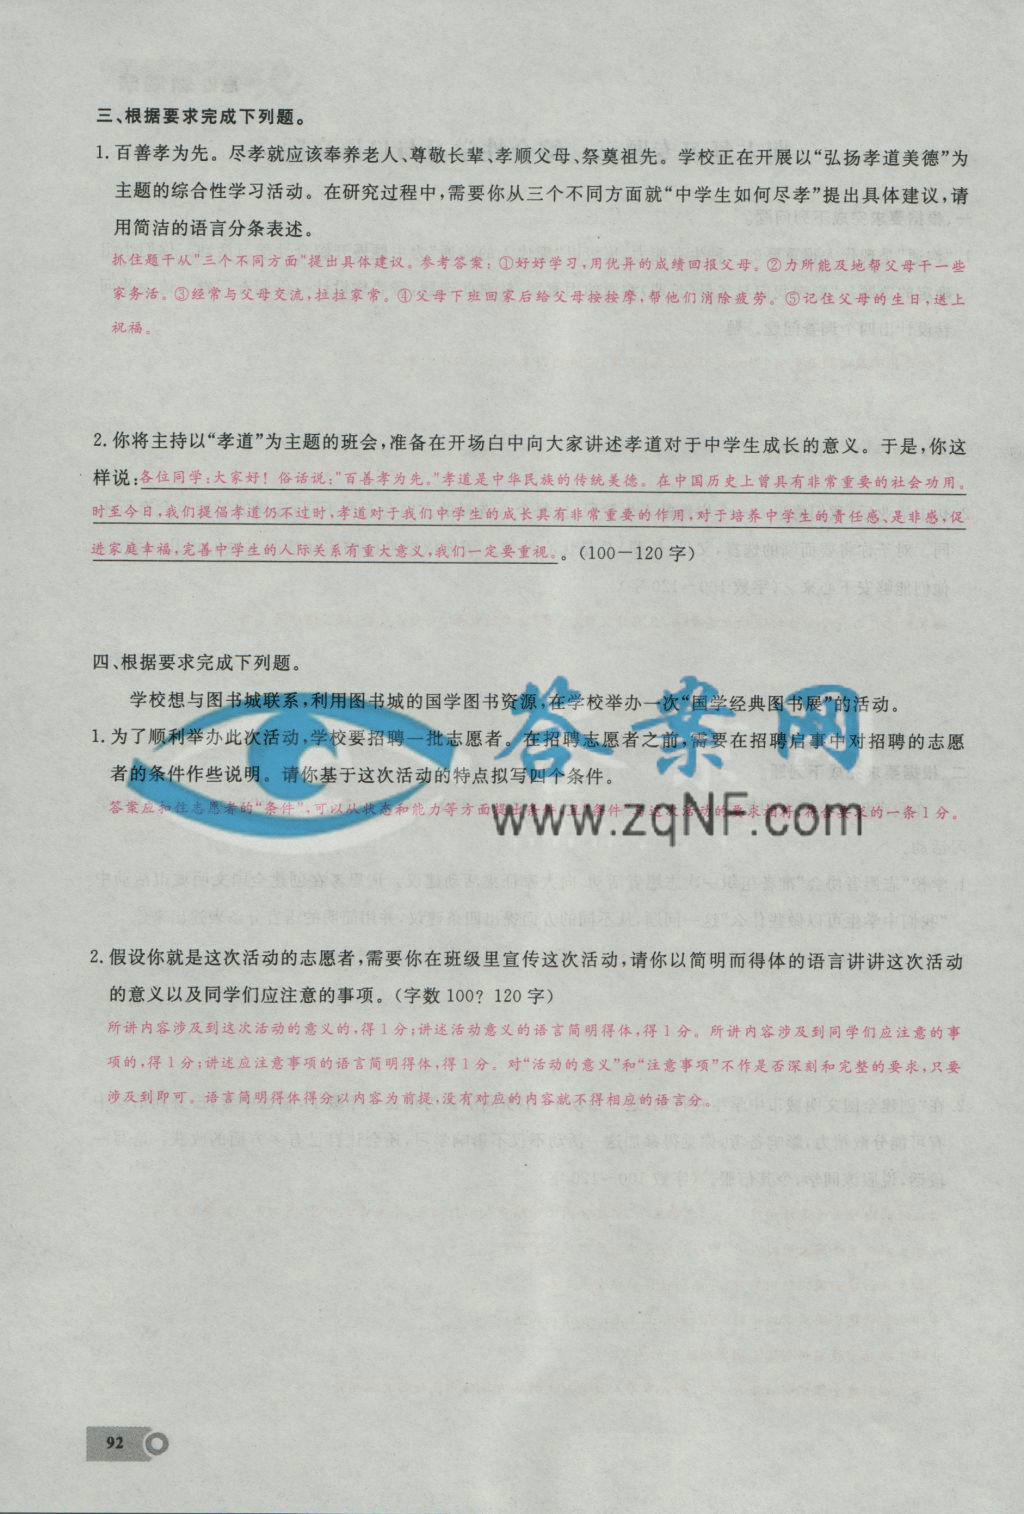 三、根据要求完成下列题。
1. 百善孝为先。尽孝就应该奉养老人、尊敬长辈、孝顺父母、祭奠祖先。学校正在开展以“弘扬孝道美德”为
主题的综合性学习活动。在研究过程中，需要你从三个不同方面就“中学生如何尽孝”提出具体建议，请
用简洁的语言分条表述。
抓住题干从“三个不同方面”提出具体建议。参考答案：①好好学习，用优异的成绩回报父母。②力所能及地帮父母干一些
家务活。③经常与父母交流，拉拉家常。④父母下班回家后给父母按按摩，帮他们消除疲劳。⑤记住父母的生日，送上
祝福。
2. 你将主持以“孝道”为主题的班会，准备在开场白中向大家讲述孝道对于中学生成长的意义。于是，你这
样说：各位同学：大家好！俗话说：“百善孝为先。”孝道是中华民族的传统美德。在中国历史上曾具有非常重要的社会功用。
时至今日，我们提倡孝道仍不过时，孝道对于我们中学生的成长具有非常重要的作用，对于培养中学生的责任感、是非感，促
进家庭幸福，完善中学生的人际关系有重大意义，我们一定要重视。。（100－120 字）
四、根据要求完成下列题。
学校想与图书城联系，利用图书城的国学图书资源，在学校举办一次“国学经典图书展”的活动。
1. 为了顺利举办此次活动，学校要招聘一批志愿者。在招聘志愿者之前，需要在招聘启事中对招聘的志愿
者的条件作些说明。请你基于这次活动的特点拟写四个条件。
答案应扣住志愿者的“条件”，可以从状态和能力等方面提出条件，且“条件”与这次活动的要求相符，符合要求的一条 1 分。
答案网
www.zqNF.com
2. 假设你就是这次活动的志愿者，需要你在班级里宣传这次活动，请你以简明而得体的语言讲讲这次活动
的意义以及同学们应注意的事项。（字数 100？120 字）
所讲内容涉及到这次活动的意义的，得 1 分；讲述活动意义的语言简明得体，得 1 分。所讲内容涉及到同学们应注意的事
项的，得 1 分；讲述应注意事项的语言简明得体，得 1 分。对“活动的意义”和“注意事项”不作是否深刻和完整的要求，只要
涉及到即可。语言简明得体得分以内容为前提，没有对应的内容就不得相应的语言分。
92